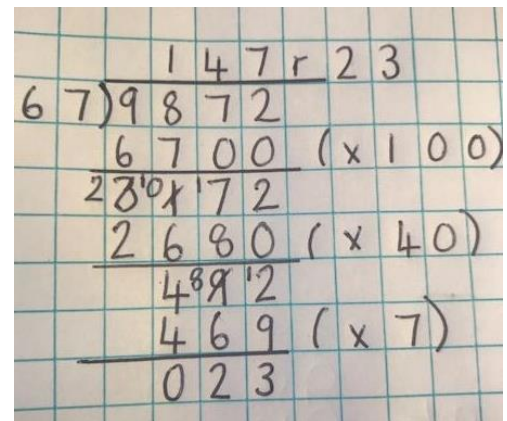 147 r 23
67)9872
6700 (x 100)
3172
2680 (x 40)
492
469 (x 7)
023